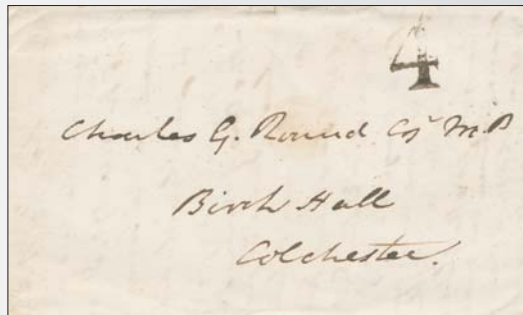 4
Charles G. Round Esqr M.P
Birch Hall
Colchester.